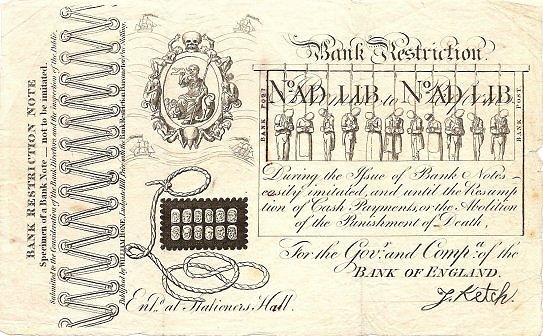 BANK RESTRICTION NOTE
Specimen of a Bank Note — not to be imitated.
Submitted to the Consideration of the Bank Directors and the inspection of the Public.
Bank Restriction.
No. AD LIB. to No. AD LIB.
BANK POST
BANK POST
During the Issue of Bank Notes
easily imitated, and until the Resump
tion of Cash Payments, or the Abolition
of the Punishment of Death,
For the Govr. and Compa. of the
BANK OF ENGLAND.
J. Ketch.
Entd. at Stationers Hall.